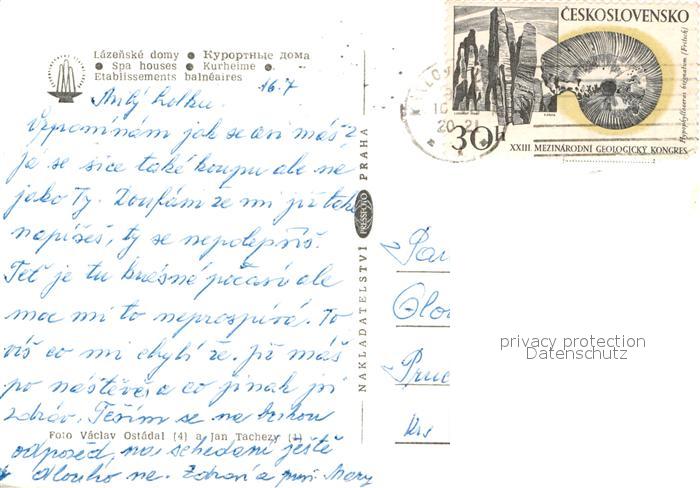 Lázeňské domy ● Курортные дома
● Spa houses ● Kurheime ●
Etablissements balnéaires
16.7
Milý Lolku.
Vzpomínám jak se asi máš?
Já se sice také koupu ale ne
jako Ty. Doufám že mi již také
napíšeš, ty se nepolepšíš.
Teď je tu krásné počasí ale
moc mi to neprospívá. To
víš co mi chybí že. Již máš
po návštěvě, a co jinak jsi
zdráv. Těším se na brzkou
Foto Václav Ostádal (4) a Jan Tachezy (1)
odpověď, na schledání ještě
dlouho ne. Zdraví a Mary
NAKLADATELSTVÍ PRESSFOTO PRAHA
ČESKOSLOVENSKO
30h
XXIII MEZINÁRODNÍ GEOLOGICKÝ KONGRES
Hypophylloceras bizonatum (Fritsch)
Pan
Olo
Pruc
privacy protection
Datenschutz